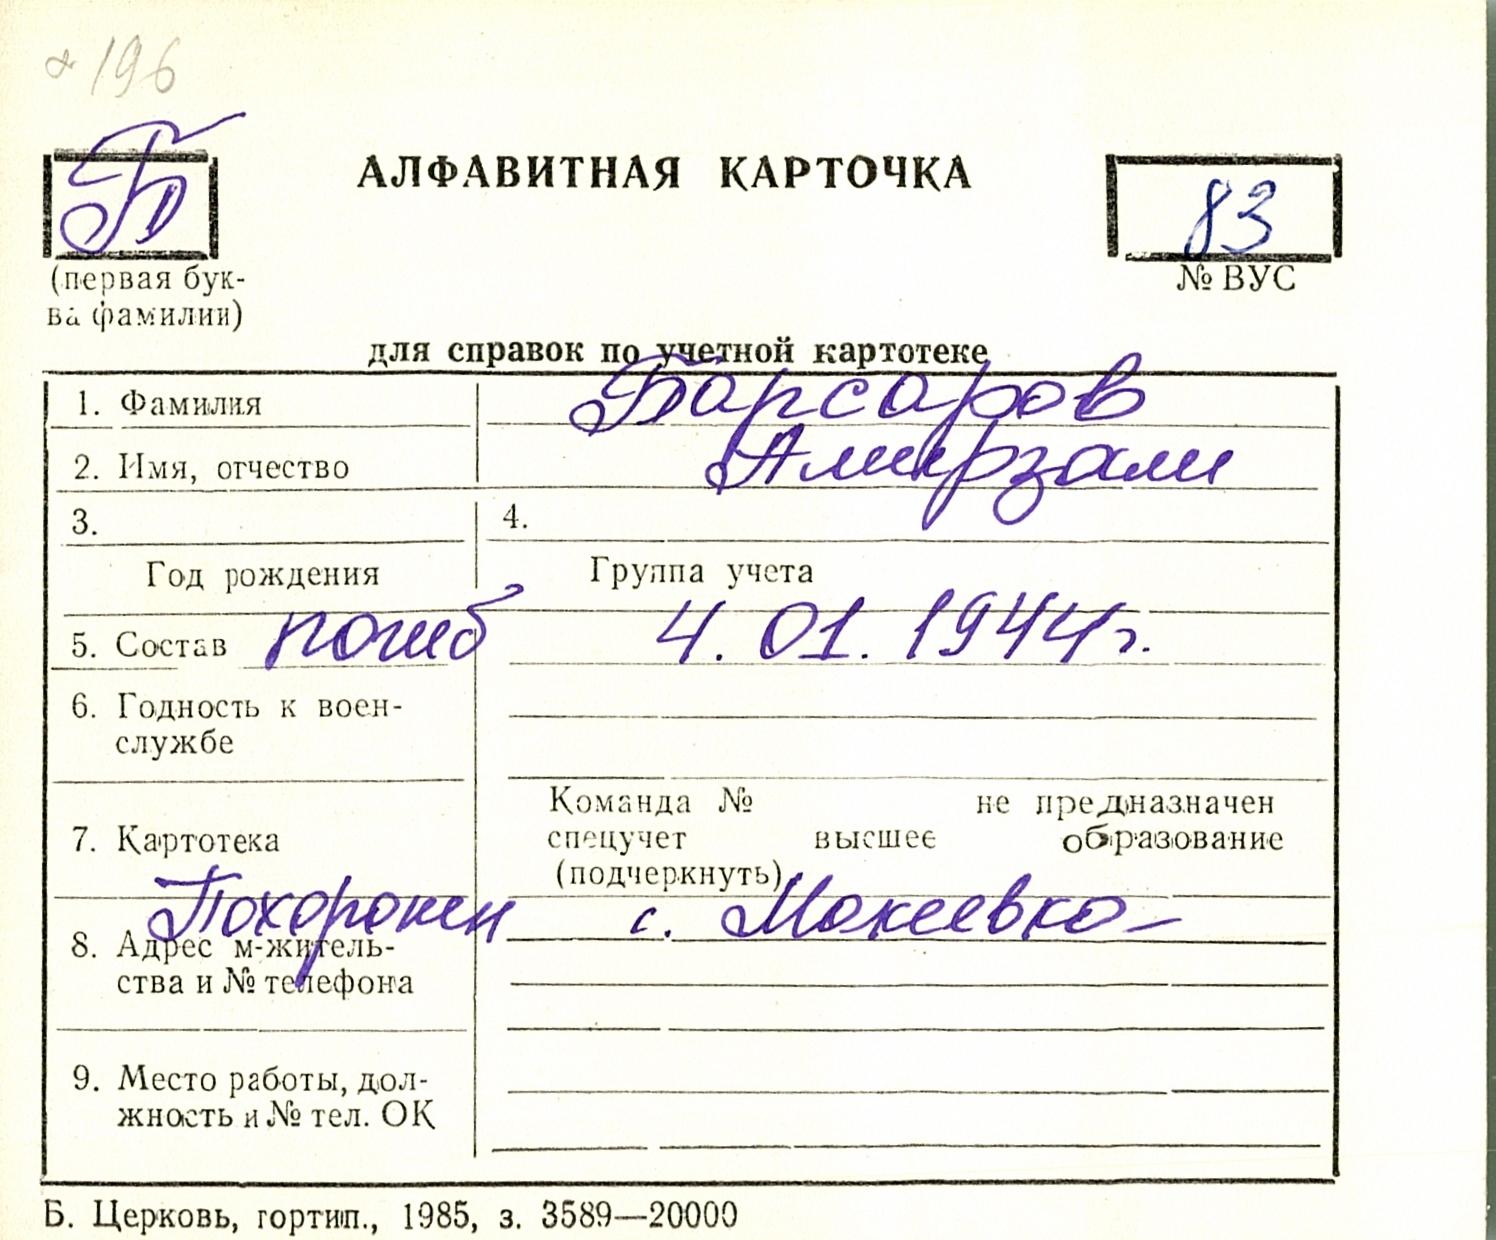 196
Б
АЛФАВИТНАЯ КАРТОЧКА
83
(первая бук-
ва фамилии)
№ ВУС
для справок по учетной картотеке
1. Фамилия Барсаров
2. Имя, отчество Амирзали
3. 4.
Год рождения Группа учета
5. Состав погиб 4.01.1944г.
6. Годность к воен-
службе
Команда № не предназначен
7. Картотека спецучет высшее образование
(подчеркнуть)
Похоронен с. Макеевка
8. Адрес м-житель-
ства и № телефона
9. Место работы, дол-
жность и № тел. ОК
Б. Церковь, гортип., 1985, з. 3589—20000